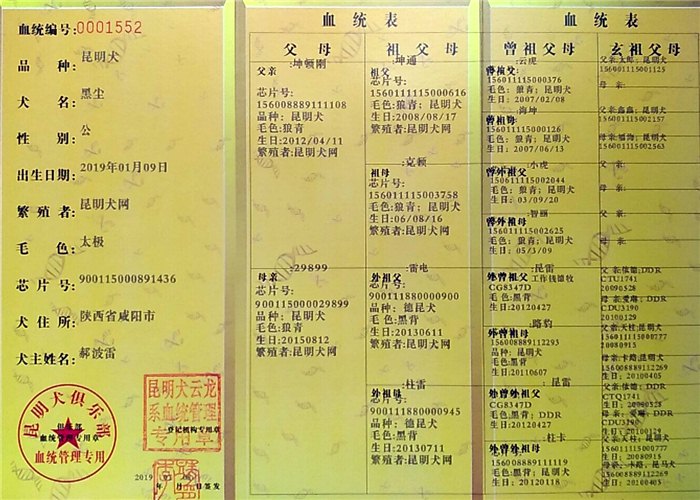 血统编号:0001552
品 种:昆明犬
犬 名:黑尘
性 别:公
出生日期:2019年01月09日
繁殖者:昆明犬网
毛 色:太极
芯片号:900115000891436
犬住所:陕西省咸阳市
犬主姓名:郝波雷
昆明犬俱乐部
俱乐部
血统管理专用章
血统管理专用
昆明犬云龙
系血统管理
登记机构专用章
专用章
2019
年 月 日签发
血 统 表
父 母
祖 父 母
父亲 :坤顿刚
芯片号:
156008889111108
品种: 昆明犬
毛色:狼青
生日:2012/04/11
繁殖者:昆明犬网
母亲 :29899
芯片号:
900115000029899
品种: 昆明犬
毛色:狼青
生日:20150812
繁殖者:昆明犬网
祖父 :坤通
芯片号:
1560111115000616
毛色:狼青; 昆明犬
生日:2008/08/17
繁殖者:昆明犬网
祖母 :克顿
芯片号:
156011115003758
毛色:狼青; 昆明犬
生日:06/08/16
繁殖者:昆明犬网
外祖父 :雷电
芯片号:
900111880000900
品种: 德昆犬
毛色:黑背
生日:20130611
繁殖者:昆明犬网
外祖母 :杜雷
芯片号:
900111880000945
品种: 德昆犬
毛色:黑背
生日:20130711
繁殖者:昆明犬网
血 统 表
曾祖父母
玄祖父母
曾祖父 :云虎
156011115000376
毛色: 狼青; 昆明犬
生日: 2007/02/08
曾祖母 :海坤
156011115000126
毛色: 狼青; 昆明犬
生日: 2007/06/13
曾外祖父 :小虎
156011115002044
毛色: 狼青; 昆明犬
生日: 03/09/20
曾外祖母 :智丽
156011115002625
毛色: 狼青; 昆明犬
生日: 05/3/09
外曾祖父 :昆雷
CG8347D 工作犬德牧
毛色:黑背
生日:20120427
外曾祖母 :路豹
156008889112293
毛色:黑背; 昆明犬
生日:20110607
外曾外祖父 :昆雷
CG8347D
毛色:黑背; DDR
生日:20120427
外曾外祖母 :杜卡
156008889111119
毛色:黑背; 昆明犬
生日: 20120118
父亲:太郎; 昆明犬
156011115001125
母 亲:
父亲:鑫鑫; 昆明犬
156011115002157
母亲:福海; 昆明犬
156011115002563
父 亲:
母 亲:
父 亲:
母 亲:
父亲:依德;DDR
CTU1741
20090528
母 亲:爱琳; DDR
CDU3190
20100129
父亲:天柱;昆明犬
156011115000777
生日:20080915
母亲:卡路;昆明犬
156008889112269
生日: 20100405
父亲:依德;DDR
CTQ1741
生日: 20090528
母 亲: 爱琳; DDR
CDU3190
生日:20100129
父亲:天柱;昆明犬
156011115000777
生日: 20080915
母亲: 卡路, 昆马犬
156008889112269
生日: 20100405